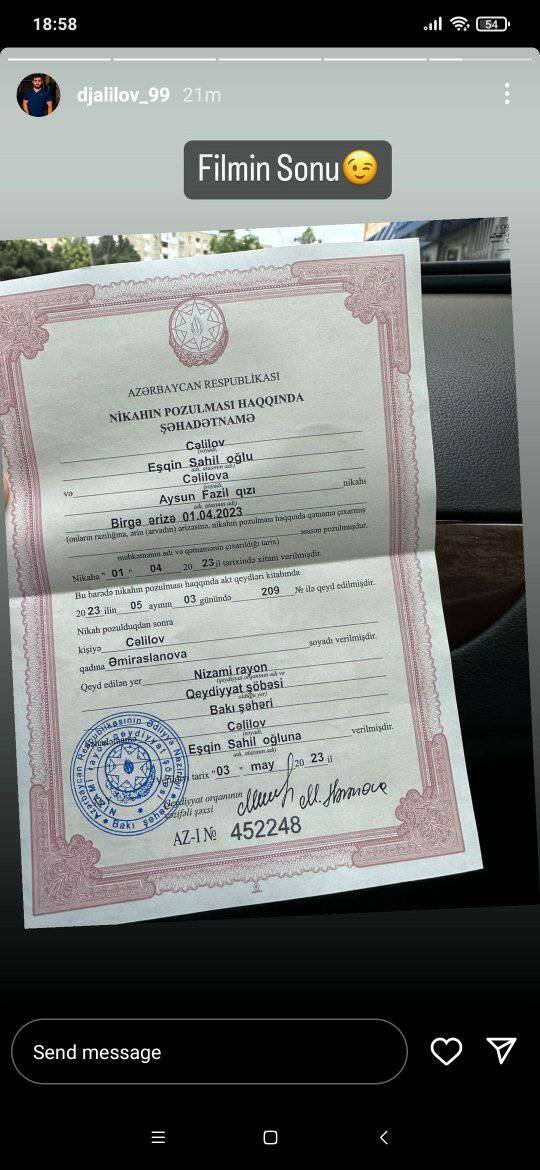 18:58
54
djalilov_99 21m
Filmin Sonu😉
AZƏRBAYCAN RESPUBLİKASI
NİKAHIN POZULMASI HAQQINDA
ŞƏHADƏTNAMƏ
Cəlilov
(soyadı,
Eşqin Sahil oğlu
adı, atasının adı)
və Cəlilova
(soyadı,
Aysun Fazil qızı nikahı
adı, atasının adı)
Birgə ərizə 01.04.2023
(onların razılığına, ərin (arvadın) ərizəsinə, nikahın pozulması haqqında qətnamə çıxarmış
əsasən pozulmuşdur.
məhkəmənin adı və qətnamənin çıxarıldığı tarix)
Nikaha "01" 04 2023 il tarixində xitam verilmişdir.
Bu barədə nikahın pozulması haqqında akt qeydləri kitabında
2023 ilin 05 ayının 03 günündə 209 № ilə qeyd edilmişdir.
Nikah pozulduqdan sonra
kişiyə Cəlilov
qadına Əmiraslanova soyadı verilmişdir.
Qeyd edilən yer Nizami rayon
(qeydiyyat orqanının adı və
Qeydiyyat şöbəsi
olduğu yer)
Bakı şəhəri
Cəlilov
(soyadı,
Eşqin Sahil oğluna verilmişdir.
adı, atasının adı)
tarix "03" may 2023 il
Qeydiyyat orqanının
vəzifəli şəxsi
AZ-I № 452248
Azərbaycan Respublikasının Ədliyyə Nazirliyi
Bakı şəhəri
Send message